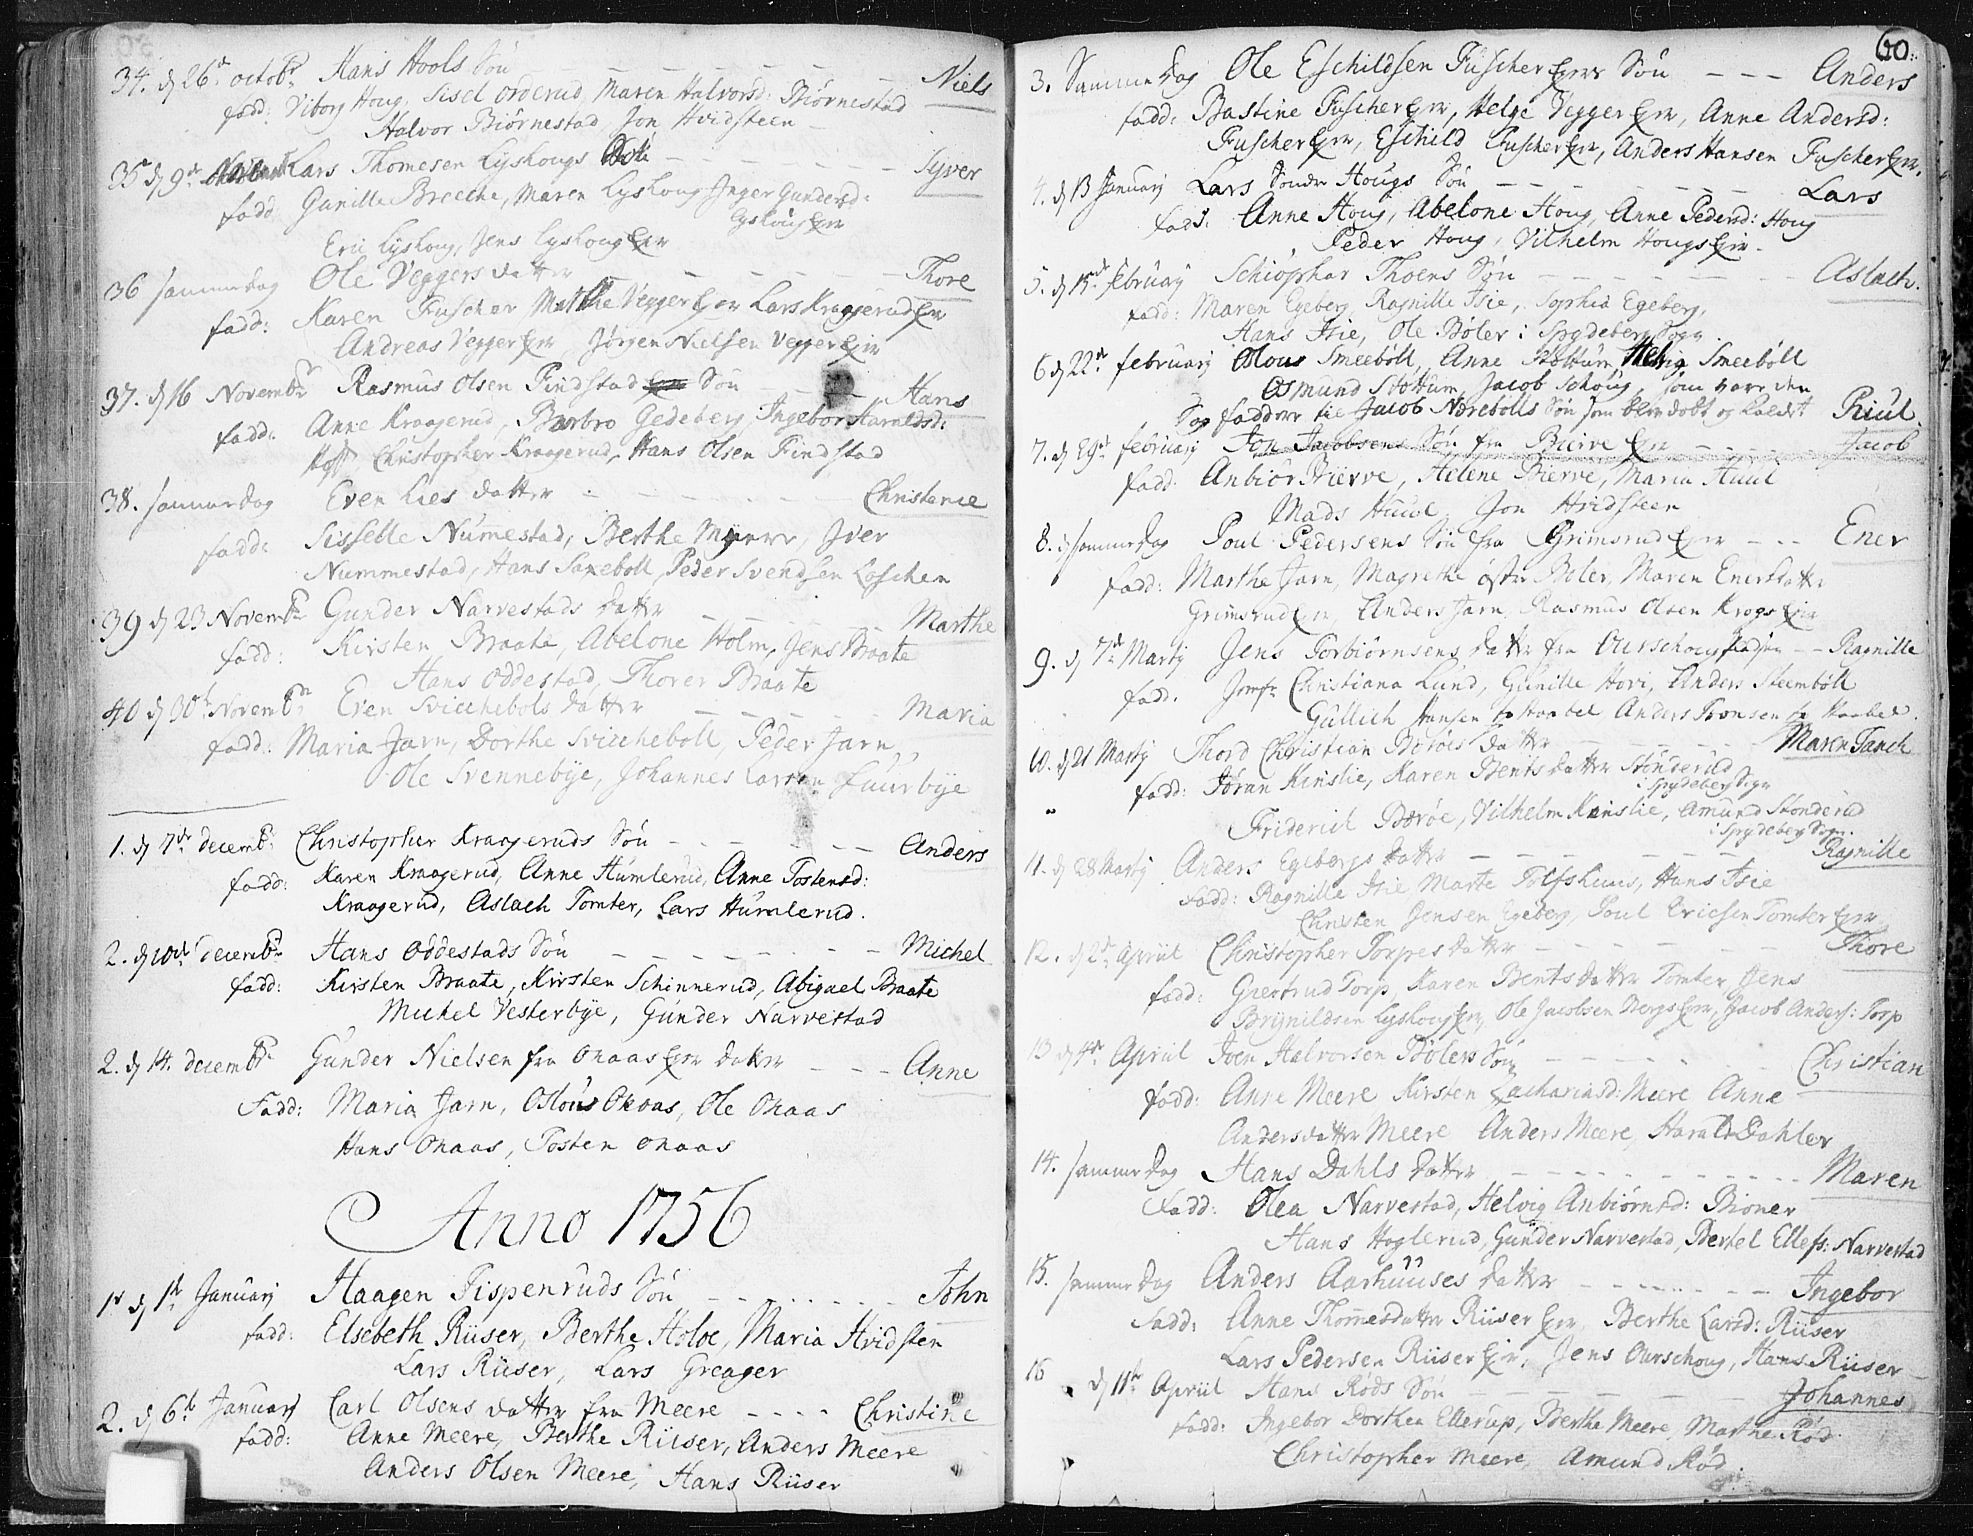 34. d 26de octobr Hans Hools Søn - - - Niels
fadd: Viborg Houg, Sisel Orderud, Maren Halvorsd: Biørnestad
Halvor Biørnestad, Jon Hvidsteen
35 d 9de Lars Thomesen Lyshougs - - - Syver
fadd Gunille Breche, Maren Lyshoug Inger Gundersd:
Lyshoug Eir
Eric Lyshoug, Jens Lyshoug Eir
36 sammedag Ole Veggers datter - - - Thore
fadd: Karen Fuscher Marthe Vegger Eir Lars Kraagerud Eir
Andreas Vegger Eir Jørgen Nielsen Vegger Eir
37. d 16 Novembr Rasmus Olsen Findstad Søn - - Hans
fadd: Anne Kraagerud, Barbro Gedeberg Ingebor Harnelsd:
Hoff Christopher Kraagerud, Hans Olsen Findstad
38. sammedag Even Lies datter - - - Christense
fadd: Sisselle Numestad, Berthe Myrer, Iver
Nummestad, Hans Saxeboll, Peder Svendsen Løschen
39 d 23 Novembr Gunder Narvestads datter - - - Marthe
fadd: Kirsten Braate, Abelone Holm, Jens Braate
Hans Oddestad, Thorer Braate
40 d 30te Novembr Even Svicchebols datter - - - Maria
fadd: Maria Jarn, Dorthe Sviccheboll, Peder Jarn
Ole Svennebye, Johannes Larsen Fuurbye
1. d 7de decemb: Christopher Kraageruds Søn - - - Anders
fadd: Karen Kraagerud, Anne Humlerud, Anne Tostensd:
Kraagerud, Aslach Tomter, Lars Humlerud.
2. d 10de decembr Hans Oddestads Søn - - - Michel
fadd: Kirsten Braate, Kirsten Schinnerud, Abigael Braate
Michel Vesterbye, Gunder Narvestad
2. d 14. decembr Gunder Nielsen fra Onaas Eir datter - - - Anne
Fadd: Maria Jarn, Oslous Onaas, Ole Onaas
Hans Onaas, Tosten Onaas
Anno 1756
1 d 1te January Haagen Tispenruds Søn - - - John
fadd: Elsebeth Riiser, Berthe Holoe, Maria Hvidsten
Lars Riiser, Lars Greager
2. d 6te January Carl Olsens datter fra Meere - - - Christine
fadd: Anne Meere, Berthe Riiser, Anders Meere
Anders Olsen Meere, Hans Riiser
60.
3. Samme dag Ole Eschildsen Fuscher Eiers Søn - - - Anders
fadd: Bastine Fuscher Eir, Helge Vegger Eir, Anne Andersd:
Fuscher Eir, Eschild Fuscher Eir, Anders Hansen Fuscher Eir.
4. d 13 January Lars Søndre Hougs Søn - - - Lars
fadd. Anne Houg, Abelone Houg, Anne Pedersd: Houg
Peder Houg, Vilhelm Hougs Eir.
5. d 15de february Schiøphar Thoens Søn - - - Aslach.
fadd: Maren Egeberg, Ragnille Isie, Sophia Egeberg,
Hans Isie, Ole Bøler i Spydeberg Sogn.
6 d 22de february Oslous Smeebøll, Anne Stottum, Helvig Smeebøll
Osmund Stottum, Jacob Schoug, som vare den
faddere til Jacob Nærebølls Søn som blev døbt og kaldet Poul
7. d 29de february Jon Jacobsens Søn fra Bierve Eir - - - Jacob
fadd Anbiør Bierve, Helene Bierve, Maria Huul
Mads Huul, Jon Hvidsteen
8. d samme dag Poul Pedersens Søn fra Grimsrud Eier - - Ener
fadd: Marthe Jarn, Magrethe øster Bøler, Maren Enersdatter
Grimsrud Eir, Anders Jarn, Rasmus Olsen Krogs Eir
9. d 7de Marty Jens Torbiørnsens datter fra Ourschoug - - Ragnille
fadd. Jomfr Christiana Lund, Gunille Hovi, Anders Steenbøll
Gullich Hansen fr Haabel, Anders Pronsen fr Haabel.
10. d 21 Marty Thord Christian Bærøes datter - - - Maren Tanch
fadd: Jøran Kinslie, Karen Bents datter Stonderud
i Spydeberg Sogn
Friderich Bærøe, Vilhelm Kinslie, Amund Stonderud
i Spydeberg Sogn.
11. d 28 Marty Anders Egebergs datter - - - Ragnille
fadd: Ragnille Isie Marte Tolfshuus, Hans Isie
Christen Jensen Egeberg, Poul Ericsen Tomter Eir
12. d 2de Apriil Christopher Torpes datter - - - Thore
fadd: Giertrud Torp, Karen Bents datter Tomter Jens
Brynildsen Lyshoug Eir, Ole Jacobsen Bergs Eir, Jacob Anders: Torp
13 d 4de Apriil Joen Halvorsen Bølers Søn - - - Christian
fadd: Anne Meere Kirsten Zachariasd: Meere Anne
Andersdatter Meere Anders Meere, Harald Dahler
14. samme dag Hans Dahls datter - - - Maren
Fadd: Olea Narvestad, Helvig Anbiørnsd: Bioner
Hans Hoglerud, Gunder Narvestad, Bertel Ellefs: Narvestad
15. samme dag Anders Aarhuuses datter - - - Ingebor
Fadd: Anne Thomesdatter Riiser Eir, Berthe Larsd: Riiser
Lars Pedersen Riiser Eir, Jens Ourschoug, Hans Riiser
16 d 11te Apriil Hans Røds Søn - - - Johannes
fadd: Ingebor Dorthea Ellerup, Berthe Meere, Marthe Rød
Christopher Meere, Amund Rød.